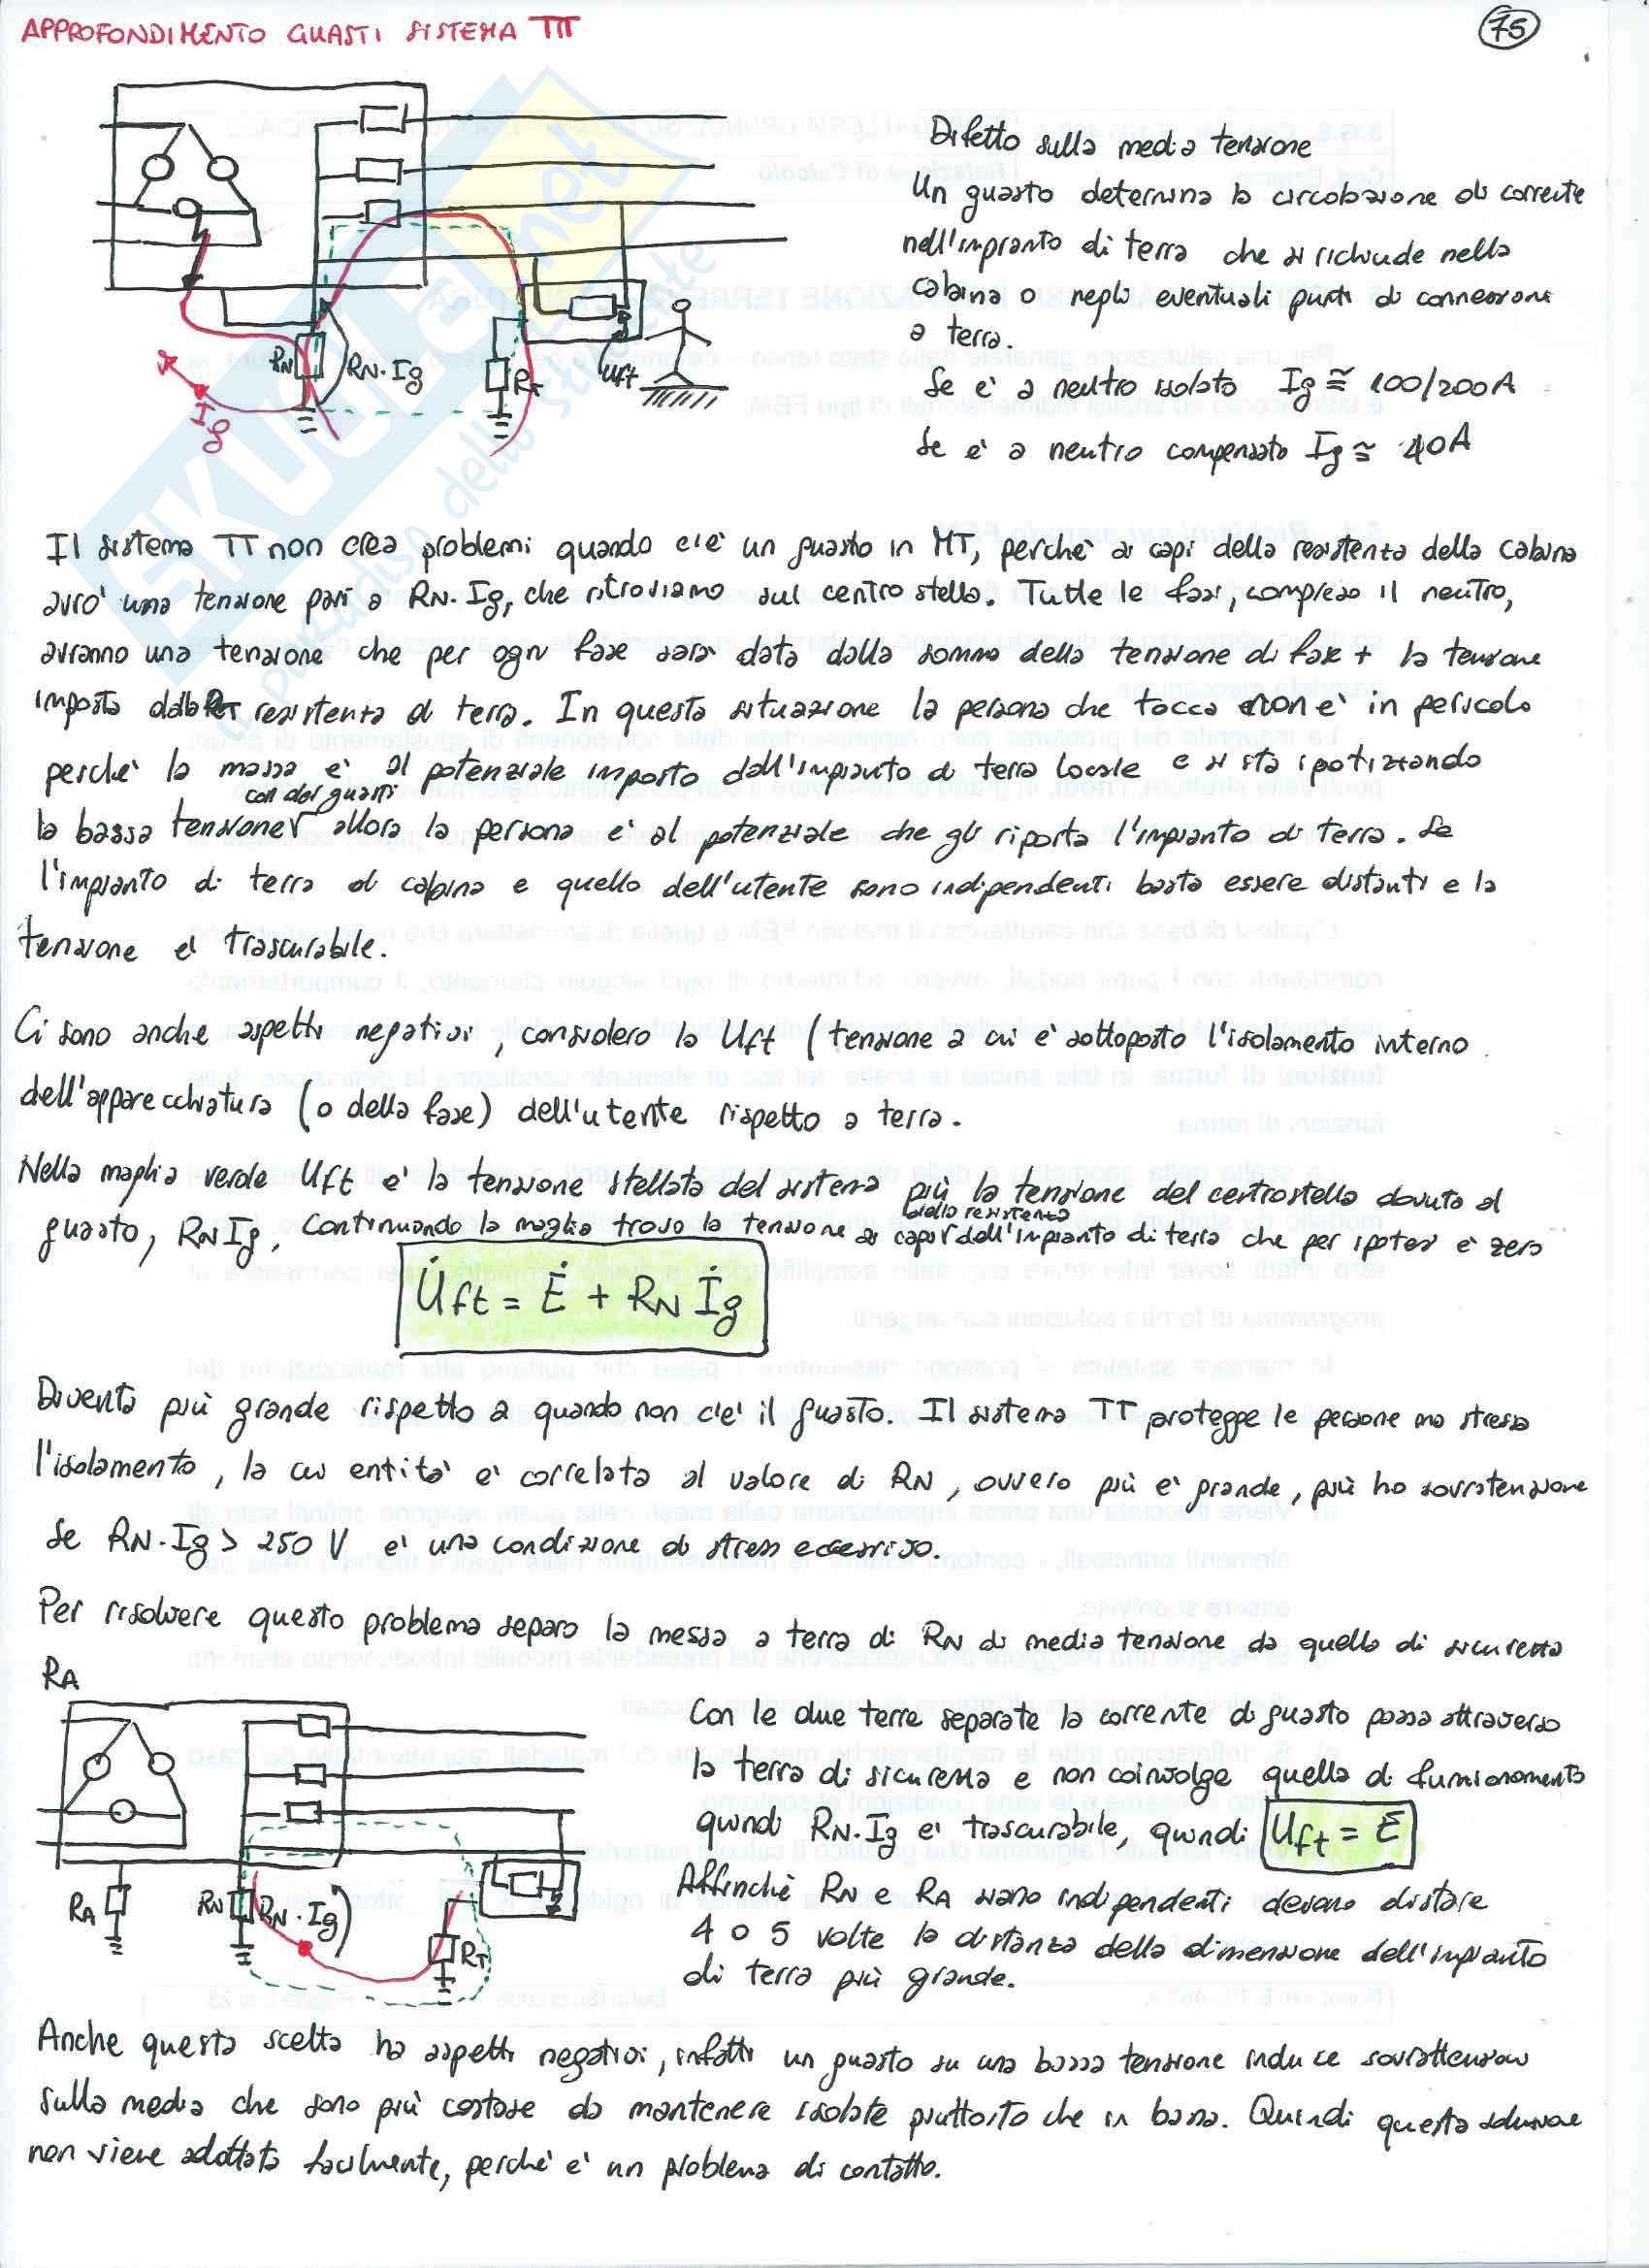 APPROFONDIMENTO GUASTI SISTEMA TT
75
Difetto sulla media tensione
Un guasto determina la circolazione di corrente
nell'impianto di terra che si richiude nella
cabina o negli eventuali punti di connessione
a terra.
Se e' a neutro isolato Ig ≅ 100/200A
Se e' a neutro compensato Ig ≅ 40A
RN
RN·Ig
RT
Uft
Ig
Il sistema TT non crea problemi quando c'e' un guasto in MT, perche' ai capi della resistenza della cabina
avro' una tensione pari a RN·Ig, che ritroviamo sul centro stella. Tutte le fasi, compreso il neutro,
avranno una tensione che per ogni fase sara' data dalla somma della tensione di fase + la tensione
imposta dalla resistenza di terra. In questa situazione la persona che tocca non e' in pericolo
perche' la massa e' al potenziale imposto dall'impianto di terra locale e si sta ipotizzando
con dei guasti
la bassa tensione allora la persona e' al potenziale che gli riporta l'impianto di terra. Se
l'impianto di terra di cabina e quello dell'utente sono indipendenti basta essere distanti e la
tensione e' trascurabile.
Ci sono anche aspetti negativi, considero la Uft (tensione a cui e' sottoposto l'isolamento interno
dell'apparecchiatura (o della fase) dell'utente rispetto a terra.
Nella maglia verde Uft e' la tensione stellata del sistema più la tensione del centrostella dovuta al
della resistenza
guasto, RN Ig, continuando la maglia trovo la tensione ai capi dell'impianto di terra che per ipotesi e' zero
U̇ft = Ė + RN İg
Diventa più grande rispetto a quando non c'e' il guasto. Il sistema TT protegge le persone ma stressa
l'isolamento, la cui entita' e' correlata al valore di RN, ovvero più e' grande, più ho sovratensione
Se RN·Ig > 250 V e' una condizione di stress eccessivo.
Per risolvere questo problema separo la messa a terra di RN di media tensione da quella di sicurezza
RA
Con le due terre separate la corrente di guasto passa attraverso
la terra di sicurezza e non coinvolge quella di funzionamento
quindi RN·Ig e' trascurabile, quindi Uft = E
Affinchè RN e RA siano indipendenti devono distare
4 o 5 volte la distanza della dimensione dell'impianto
di terra più grande.
RA
RN
RN·Ig
RT
Anche questa scelta ha aspetti negativi, infatti un guasto su una bassa tensione induce sovratensioni
sulla media che sono più costose da mantenere isolate piuttosto che in bassa. Quindi questa soluzione
non viene adottata facilmente, perche' e' un problema di contatto.
SKUOLA.net
il paradiso dello studente